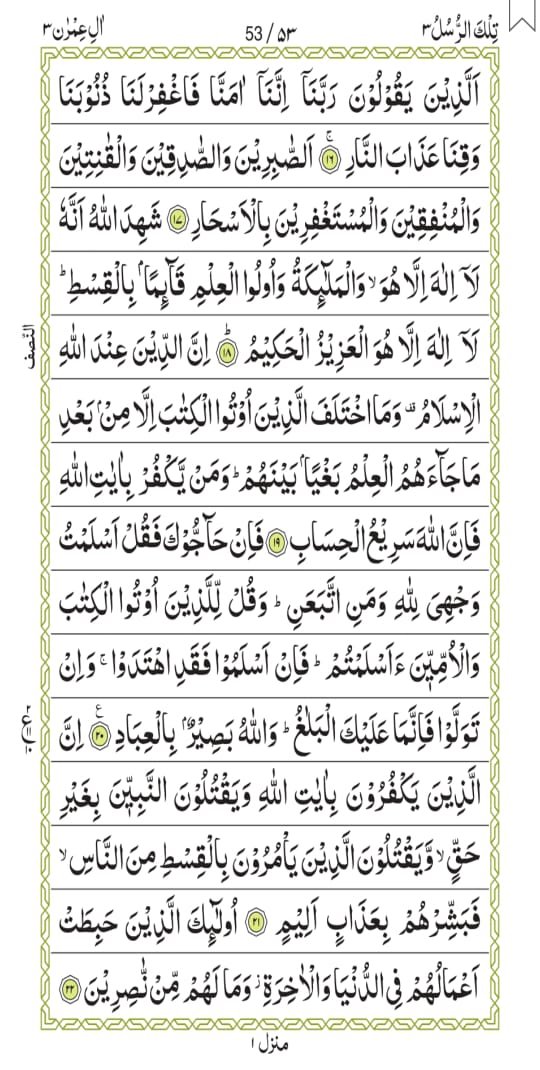 تِلْكَ الرُّسُلُ ٣
53 / ۵۳
اٰلِ عِمْرٰن ٣
اَلَّذِيْنَ يَقُوْلُوْنَ رَبَّنَاۤ اِنَّنَاۤ اٰمَنَّا فَاغْفِرْ لَنَا ذُنُوْبَنَا
وَقِنَا عَذَابَ النَّارِ ۚ‏ ﴿۱۶﴾ اَلصّٰبِرِيْنَ وَالصّٰدِقِيْنَ وَالْقٰنِتِيْنَ
وَالْمُنْفِقِيْنَ وَالْمُسْتَغْفِرِيْنَ بِالْاَسْحَارِ ﴿۱۷﴾ شَهِدَ اللّٰهُ اَنَّهٗ
لَاۤ اِلٰهَ اِلَّا هُوَ ۙ وَالْمَلٰٓئِكَةُ وَاُولُوا الْعِلْمِ قَآئِمًاۢ بِالْقِسْطِ ؕ
لَاۤ اِلٰهَ اِلَّا هُوَ الْعَزِيْزُ الْحَكِيْمُ ؕ ﴿۱۸﴾ اِنَّ الدِّيْنَ عِنْدَ اللّٰهِ
النّصف
الْاِسْلَامُ ۫ وَمَا اخْتَلَفَ الَّذِيْنَ اُوْتُوا الْكِتٰبَ اِلَّا مِنْۢ بَعْدِ
مَا جَآءَهُمُ الْعِلْمُ بَغْيًاۢ بَيْنَهُمْ ؕ وَمَنْ يَّكْفُرْ بِاٰيٰتِ اللّٰهِ
فَاِنَّ اللّٰهَ سَرِيْعُ الْحِسَابِ ﴿۱۹﴾ فَاِنْ حَآجُّوْكَ فَقُلْ اَسْلَمْتُ
وَجْهِيَ لِلّٰهِ وَمَنِ اتَّبَعَنِ ؕ وَقُلْ لِّلَّذِيْنَ اُوْتُوا الْكِتٰبَ
وَالْاُمِّيّٖنَ ءَاَسْلَمْتُمْ ؕ فَاِنْ اَسْلَمُوْا فَقَدِ اهْتَدَوْا ۚ وَاِنْ
تَوَلَّوْا فَاِنَّمَا عَلَيْكَ الْبَلٰغُ ؕ وَاللّٰهُ بَصِيْرٌۢ بِالْعِبَادِ ﴿۲۰﴾ اِنَّ
الَّذِيْنَ يَكْفُرُوْنَ بِاٰيٰتِ اللّٰهِ وَيَقْتُلُوْنَ النَّبِيّٖنَ بِغَيْرِ
حَقٍّ ۙ وَّيَقْتُلُوْنَ الَّذِيْنَ يَاْمُرُوْنَ بِالْقِسْطِ مِنَ النَّاسِ ۙ
فَبَشِّرْهُمْ بِعَذَابٍ اَلِيْمٍ ﴿۲۱﴾ اُولٰٓئِكَ الَّذِيْنَ حَبِطَتْ
اَعْمَالُهُمْ فِي الدُّنْيَا وَالْاٰخِرَةِ ؗ وَمَا لَهُمْ مِّنْ نّٰصِرِيْنَ ﴿۲۲﴾
منزل ۱